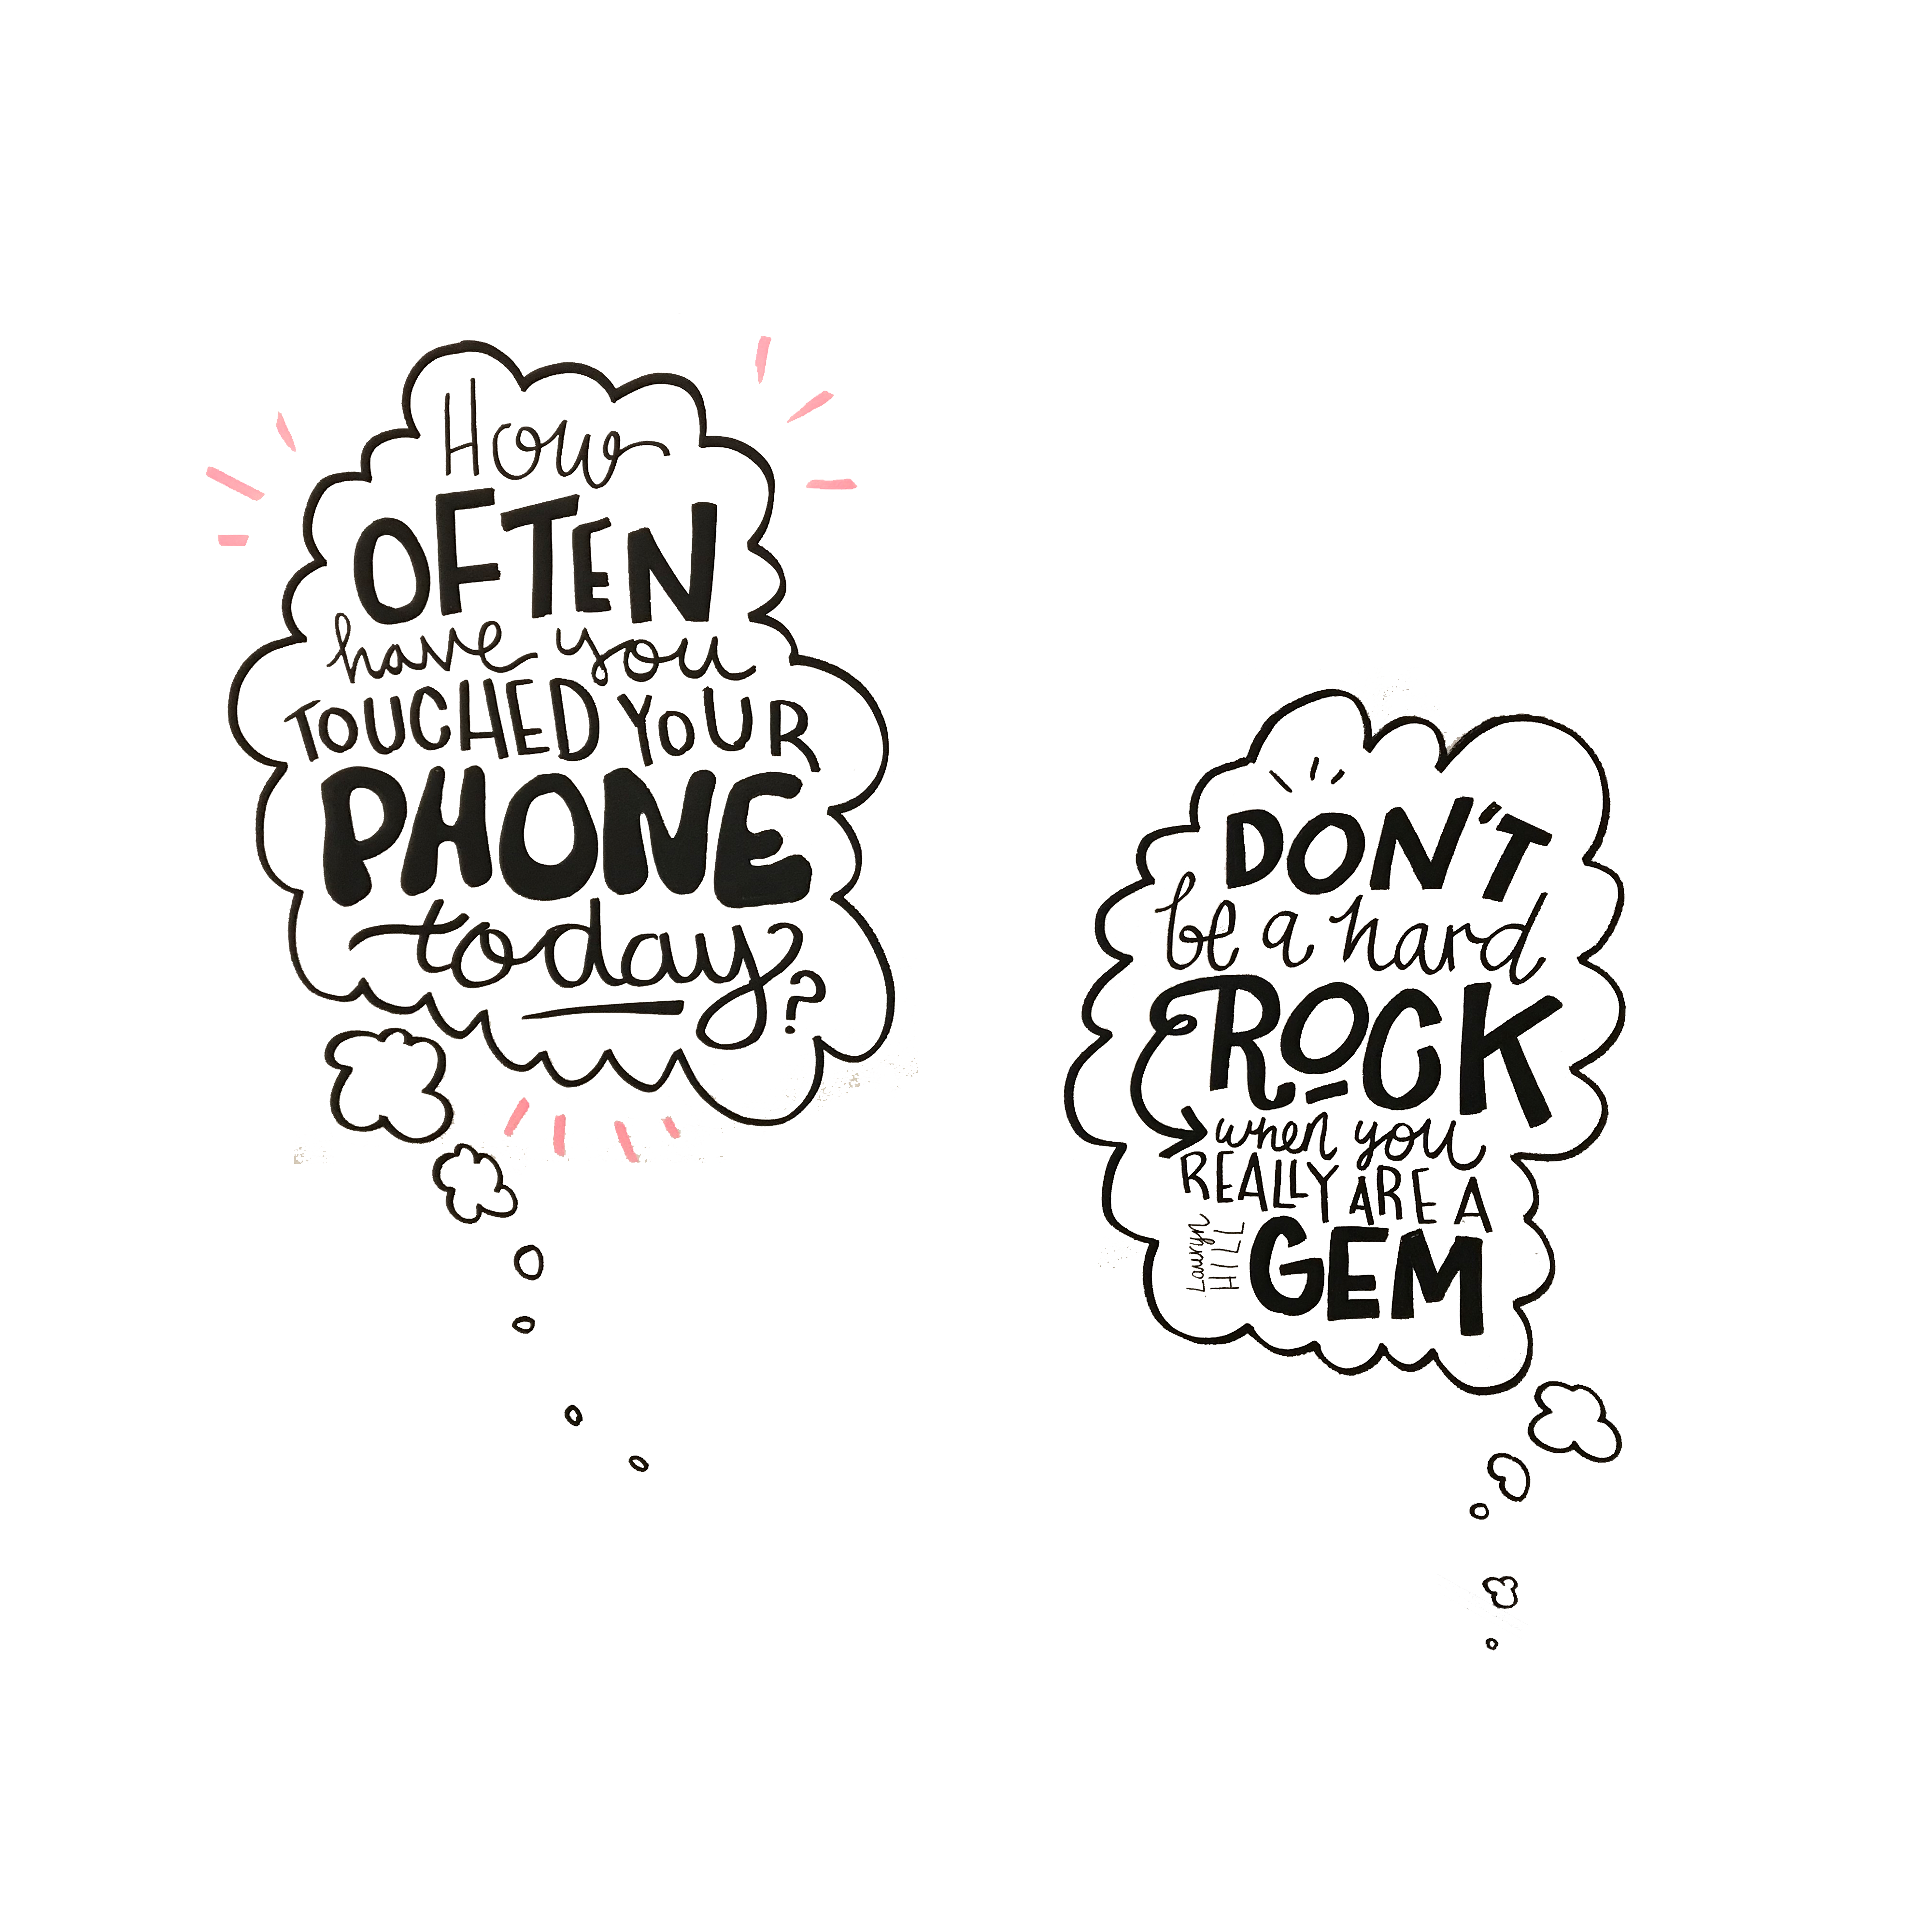 How
OFTEN
have you
TOUCHED YOUR
PHONE
today?
DON'T
be a hard
ROCK
when you
REALLY ARE A
GEM
Lauryn
HILL